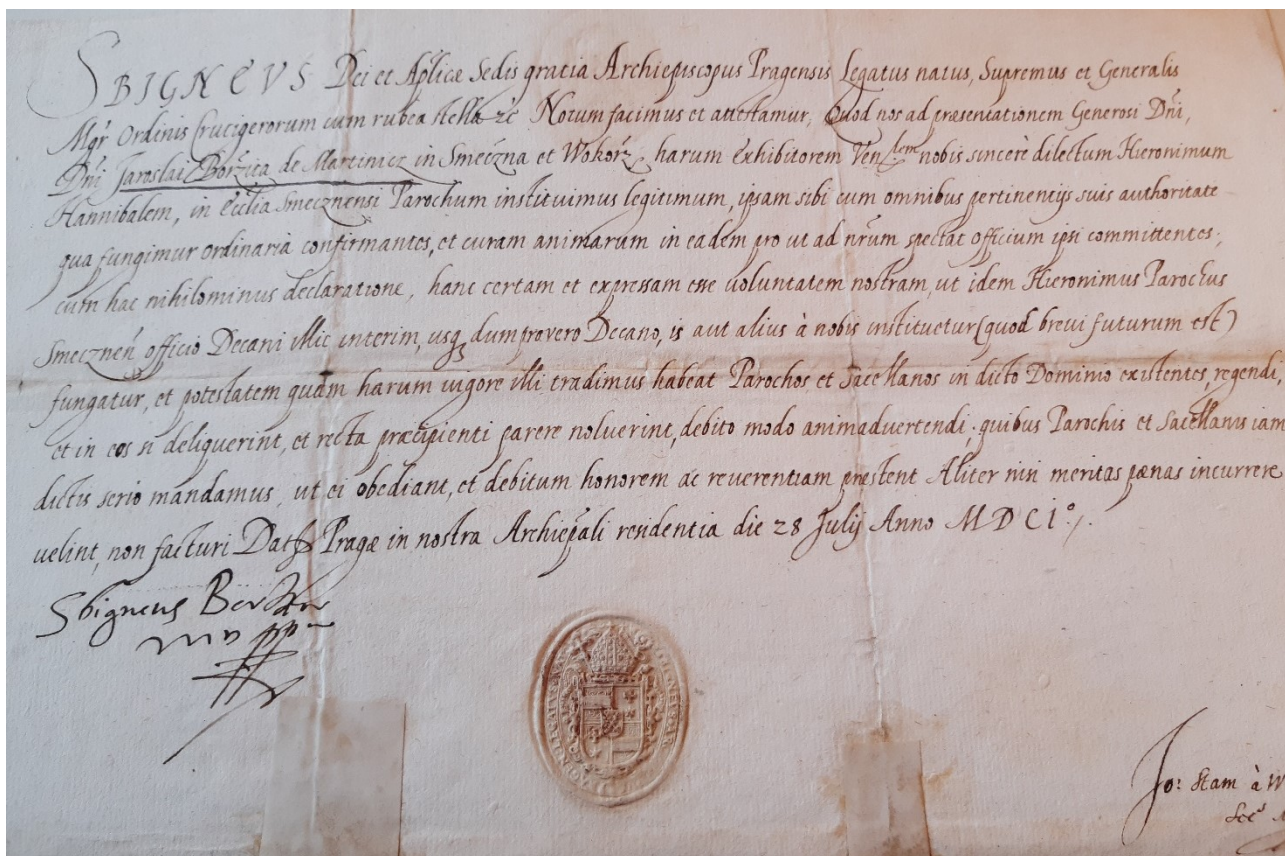 SBIGNEVS Dei et Aplicæ Sedis gratia Archiepiscopus Pragensis Legatus natus, Supremus et Generalis
Mgr̃ Ordinis Crucigerorum cum rubea stella ꝛc Notum facimus et attestamur, Quod nos ad præsentationem Generosi Dñi,
Dñi Jaroslai Borzita de Martinicz in Smeczna et Wokorz, harum exhibitorem Ven.lem nobis sincerè dilectum Hieronimum
Hannibalem, in Ecclia Smecznensi Parochum instituimus legitimum, ipsam sibi cum omnibus pertinentijs suis authoritate
qua fungimur ordinaria confirmantes, et curam animarum in eadem pro ut ad nr̃um spectat officium ipsi committentes;
cum hac nihilominus declaratione, hanc certam et expressam esse uoluntatem nostram, ut idem Hieronimus Parochus
Smecznen̄ officio Decani illic interim, usqꝫ dum pro vero Decano, is aut alius à nobis instituetur (quod brevi futurum est)
fungatur, et potestatem quam harum uigore illi tradimus habeat Parochos et Sacellanos in dicto Dominio existentes, regendi,
et in eos si deliquerint, et recta præcipienti parere noluerint, debito modo animaduertendi; quibus Parochis et Sacellanis iam
dictis serio mandamus, ut ei obediant, et debitum honorem ac reuerentiam præstent Aliter nisi meritas pænas incurrere
uelint, non facturi Dat Pragæ in nostra Archiep̃ali residentia die 28 Julij Anno MDCI.o
Sbigneus Berka
mp ppria
Jo: Stam à W
Sec